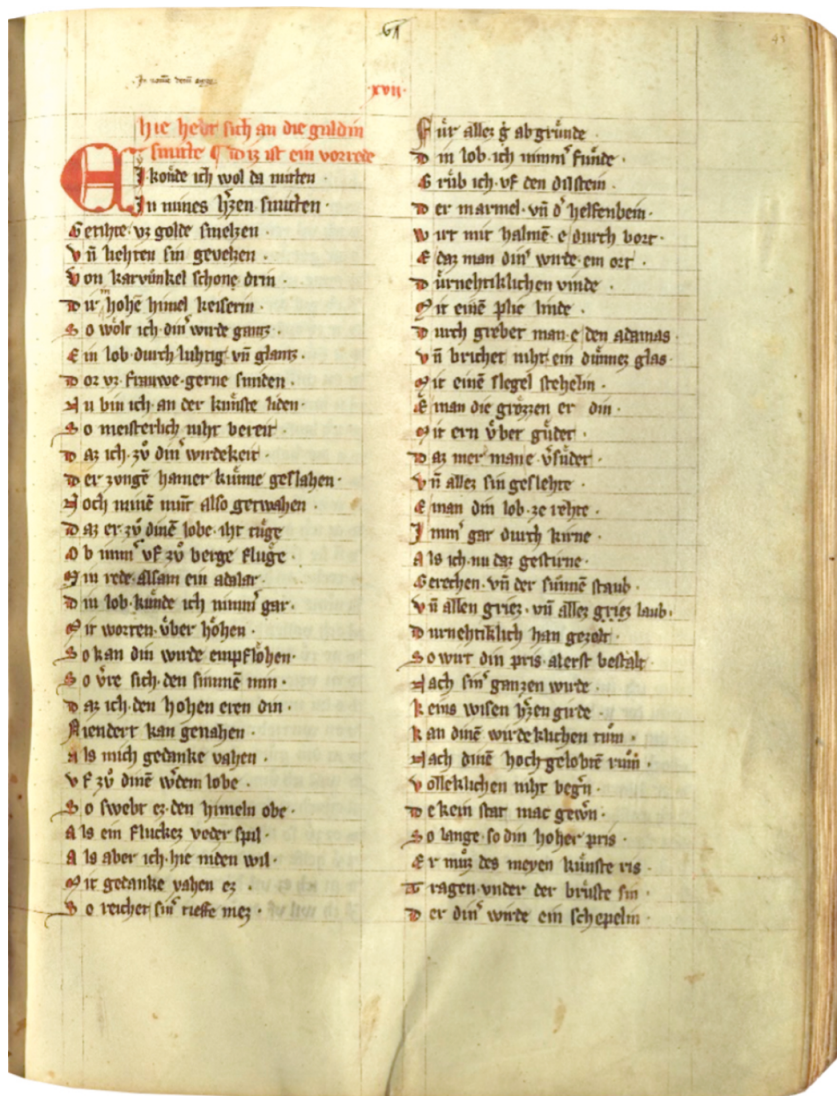 xvii·
hie hebt sich an die guldin
smitte ¶ diz ist ein vorrede
EI kỏnde ich wol da mitten
In mines h'zen smitten ·
Getihte vz golde smelzen ·
Vn̄ liehten sin gevelzen ·
Von karvunkel schone drin
Dir hohē himel keiserin ·
So wỏlt ich din' wirde gantz ·
Ein lob durch luhtig vn̄ glantz ·
Dor vz frauwe gerne smiden ·
Nu bin ich an der kunste liden ·
So meisterlich niht bereit ·
Daz ich zv̊ din' wirdekeit ·
Der zvngē hamer kunne geslahen ·
Noch minē munt also getwahen ·
Daz er zv̊ dinē lobe iht tuge
Ob imm' vf zv̊ berge fluge ·
Min rede alsam ein adalar ·
Din lob kunde ich nimm' gar ·
Mit worten vber hỏhen ·
So kan din wirde empflỏhen ·
So v're sich den sinnē min ·
Daz ich den hohen eren din ·
Niendert kan genahen ·
Als mich gedanke vahen ·
Vf zv̊ dinē w'dem lobe ·
So swebt ez den himeln obe ·
Als ein fluckez veder spil ·
Als aber ich hie niden wil ·
Mit gedanke vahen ez ·
So reichet sin' tieffe mez ·
Fur allez abgrunde ·
Din lob ich nimm' funde ·
Grub ich vf den dilstein ·
Der marmel vn̄ d' helfenbein ·
Wirt mit halmē e durch bort ·
E daz man din' wirde ein ort ·
Durnehtiklichen vinde ·
Mit einē plie linde ·
Durch grebet man e den adamas ·
Vn̄ brichet niht ein dunnez glas ·
Mit einē slegel stehelin ·
E man die grỏzzen er din ·
Mit ern vber gudet ·
Daz mer man e v'sudet ·
Vn̄ allez sin geslehte ·
E man din lob ze rehte ·
Imm' gar durch kirne ·
Als ich nu daz gestirne ·
Gerechen vn̄ der sunnē staub ·
Vn̄ allen griez vn̄ allez griez laub ·
Durnehtiklich han gezalt ·
So wirt din pris alerst bestalt
Nach sin' ganzen wirde ·
Keins wisen h'zen girde ·
Kan dinē wirdeklichen rum ·
Nach dinē hochgelobtē rum ·
Volleklichen niht beg'n ·
Dekein stat mac gew'n ·
So lange so din hoher pris ·
Er muz des meyen kunste ris ·
Tragen vnder der bruste sin ·
Der din' wirde ein schepelin ·